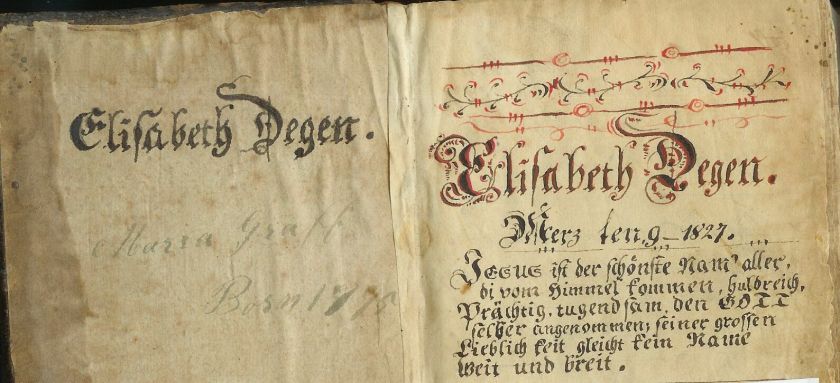 Elisabeth Degen.
Maria Graff
Born 1775
Elisabeth Degen.
Merz ten 9 – 1827.
JESUS ist der schönste Nam' aller,
di vom Himmel kommen, huldreich,
Prächtig, tugendsam, den GOTT
selber angenommen, seiner grossen
Lieblich keit gleicht kein Name
Weit und breit.